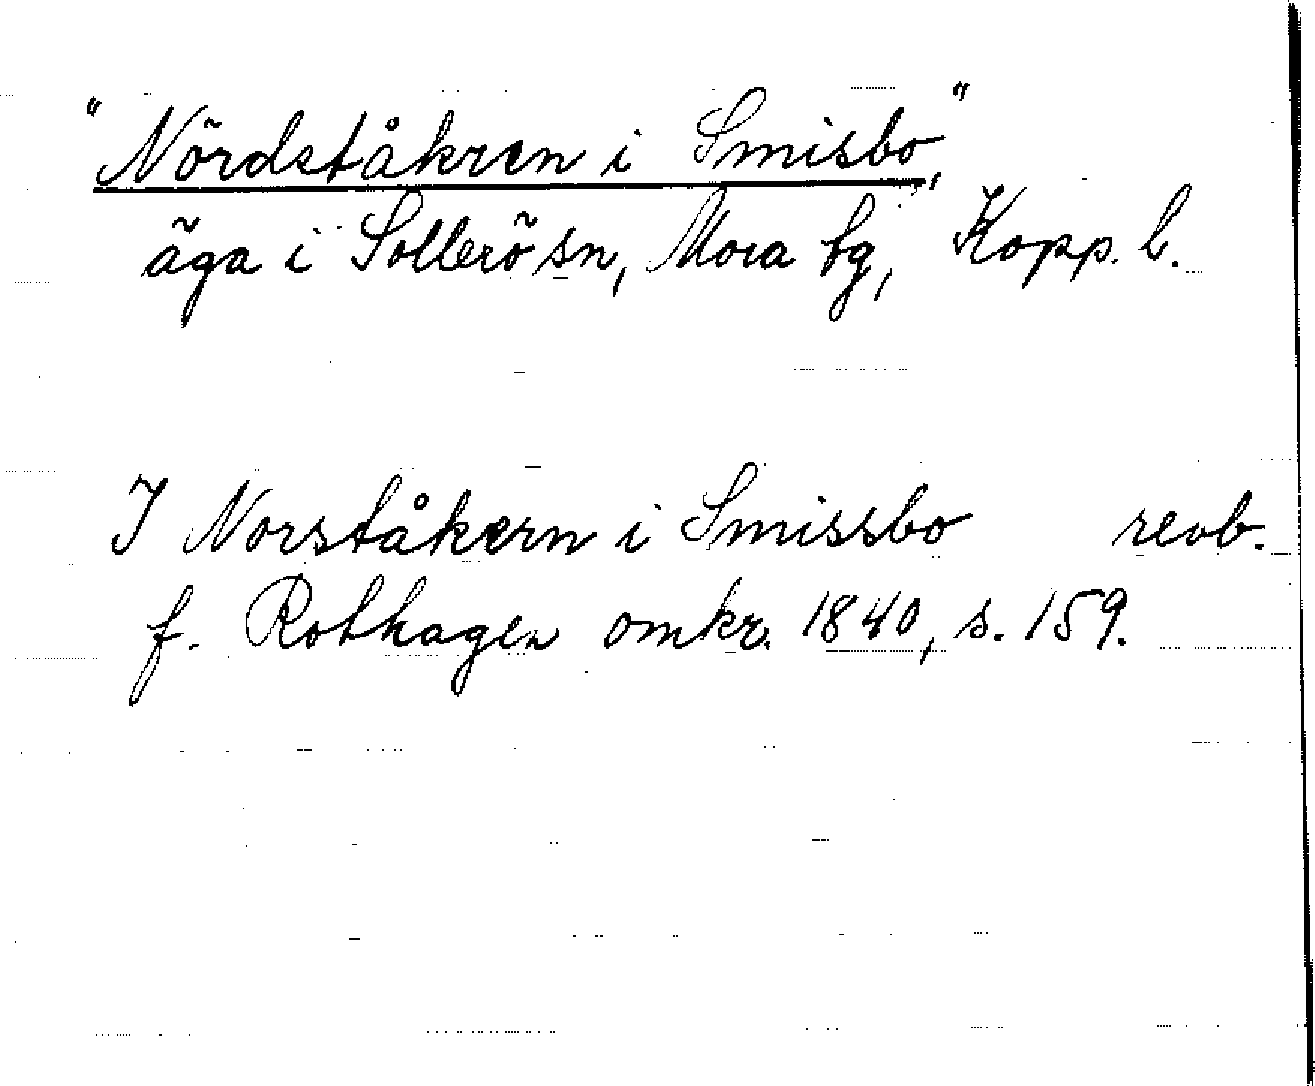 "Nördståkren i Smisbo",
äga i Sollerö sn, Mora tg, Kopp. l.
I Norståkern i Smissbo revb.
f. Rothagen omkr. 1840, s. 159.